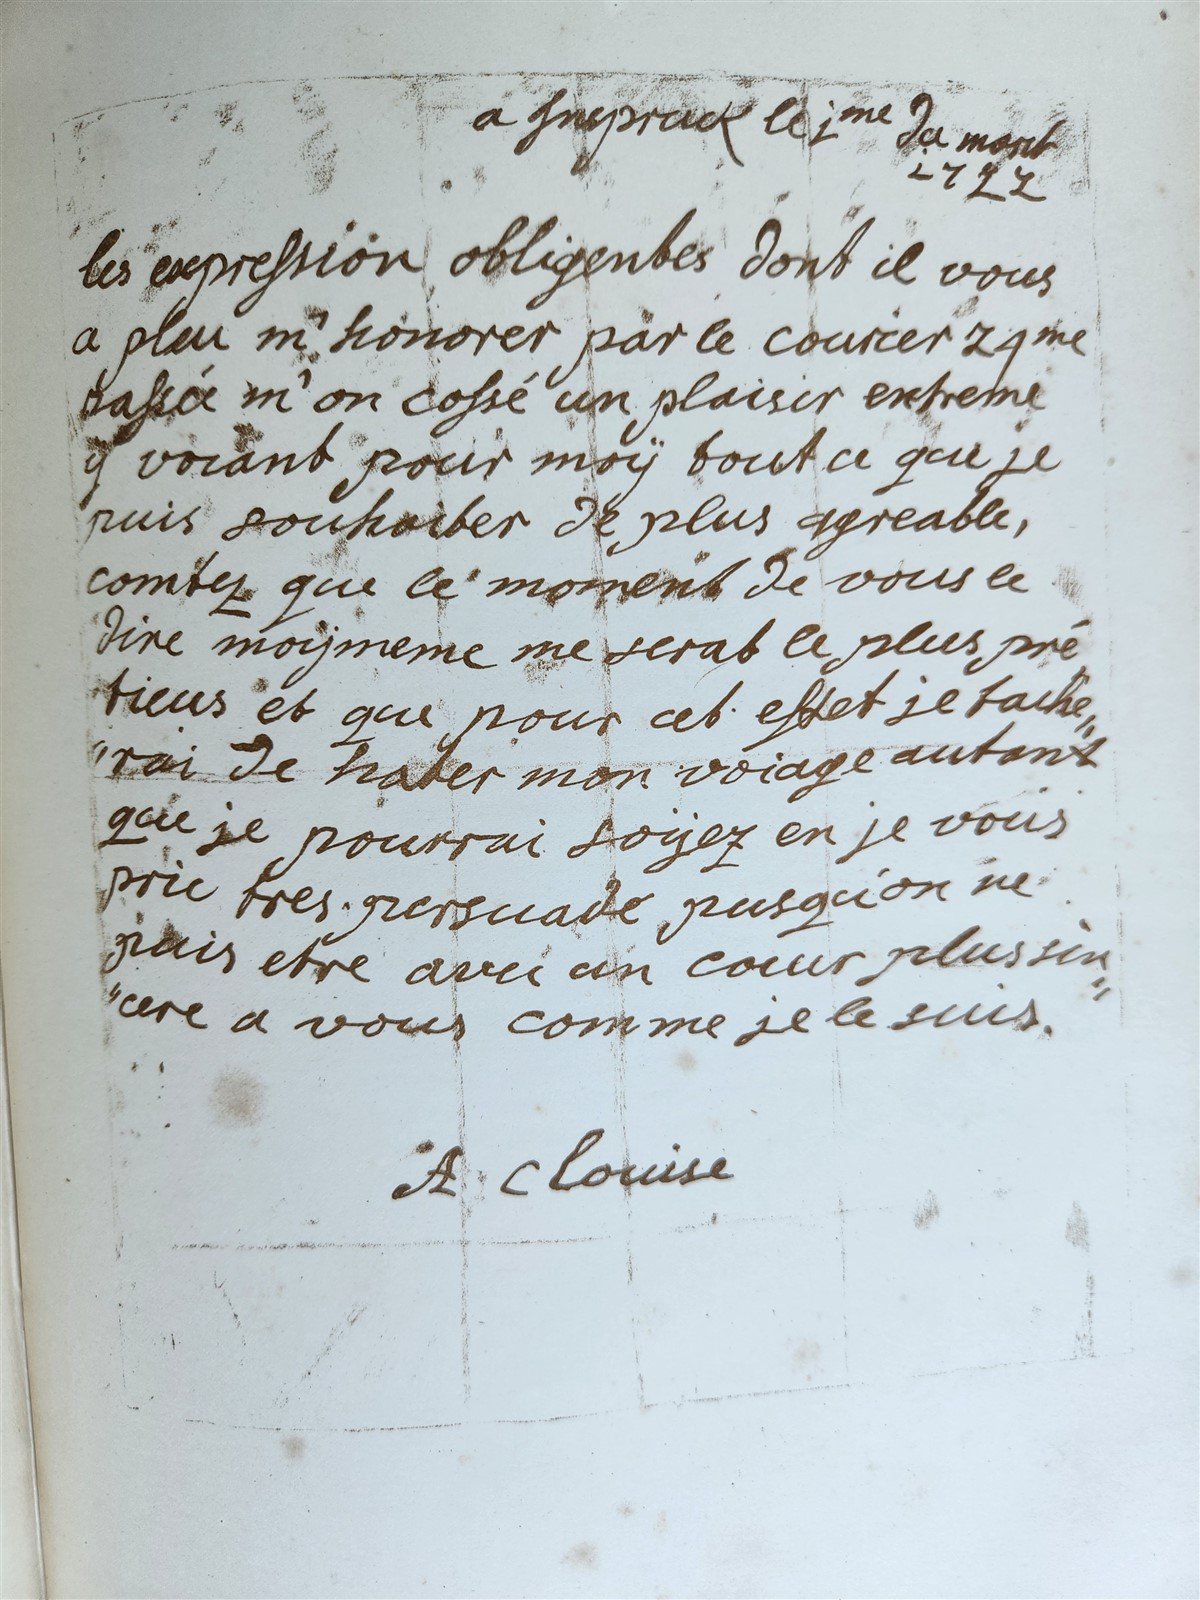 a Jnspruck le jme du mart
1722
les expression obligentes dont il vous
a pleu m'honorer par le courier 29me
passée m'on cossé un plaisir extreme
y voiant pour moÿ tout ce que je
puis souhaiter de plus agreable,
comtez que le moment de vous le
dire moÿmeme me serat le plus pré
tieus et que pour cet effet je tache„
"rai de hater mon voiage autant
que je pourrai soÿez en je vous
prie tres persuadé pusqu'on ne
puis etre avec un coeur plus sin„
"cere a vous comme je le suis.
A C louise